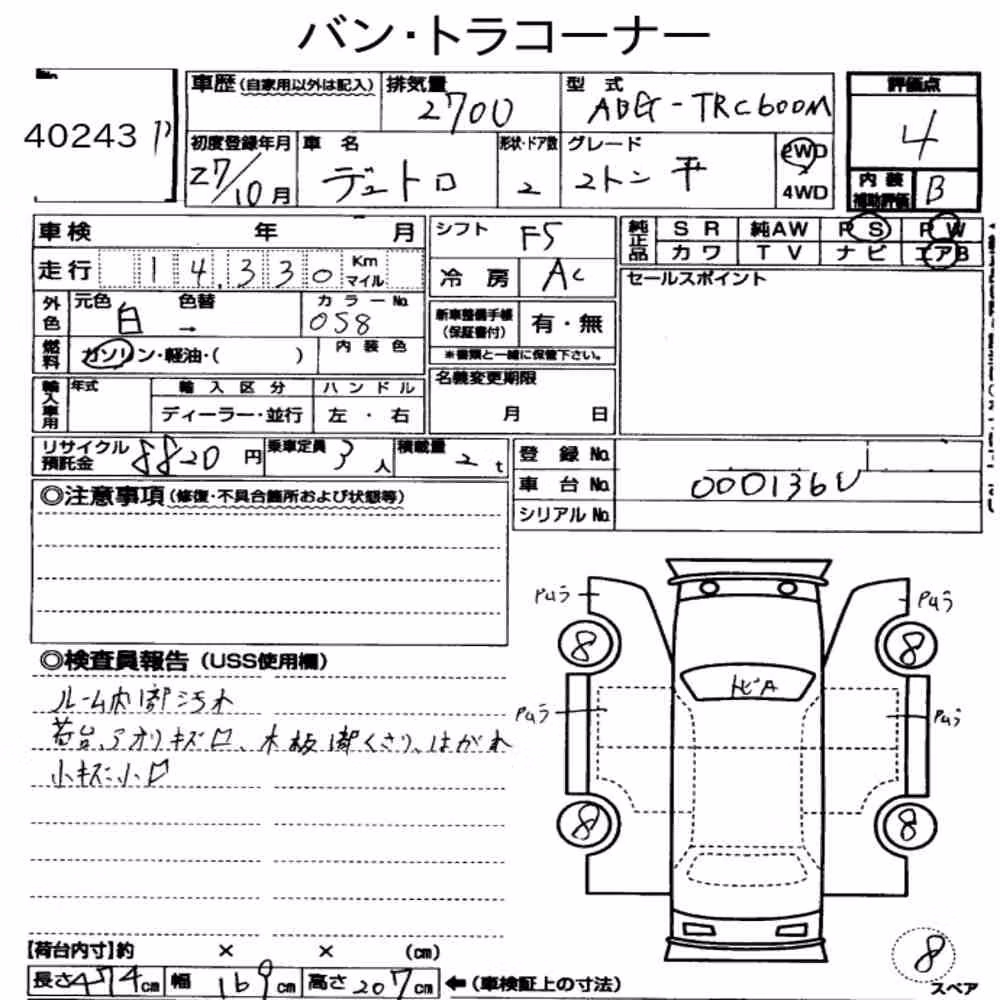 バン・トラコーナー
No.
40243
車歴 (自家用以外は記入) 排気量 2700 型 式 ABG-TRC600M 評価点 4
初度登録年月 27/10月 車 名 デュトロ 形状・ドア数 2 グレード 2トン 平 2WD 4WD
内 装 補助評価 B
車検 年 月 シフト F5 純正品 SR 純AW PS PW
走行 14,330 Km マイル 冷 房 AC カワ TV ナビ エアB
外色 元色 白 色替 → カラーNo. 058 新車整備手帳 (保証書付) 有・無 セールスポイント
燃料 ガソリン・軽油・( ) 内装色 ※書類と一緒に保管下さい。
輸入車用 年式 輸入区分 ハンドル 名義変更期限
ディーラー・並行 左・右 月 日
リサイクル預託金 8820円 乗車定員 3人 積載量 2t 登録No.
車台No. 0001360
◎注意事項 (修復・不具合箇所および状態等) シリアルNo.
◎検査員報告 (USS使用欄)
ルーム内部汚れ
荷台、アオリキズ凹、木板部くさり、はがれ
小キズ小凹
Pムラ Pムラ
8 8
トビA
Pムラ Pムラ
8 8
【荷台内寸】約 × × (cm)
長さ474cm 幅 169cm 高さ207cm ←(車検証上の寸法)
8
スペア